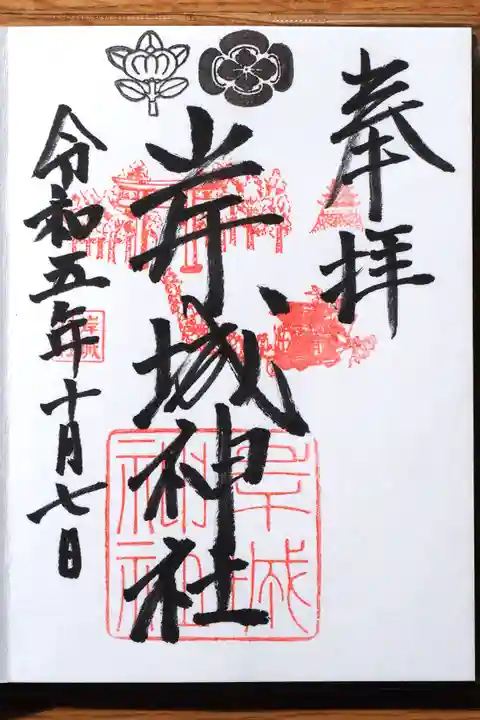 奉拝
岸城神社
令和五年十月七日
岸城
神社